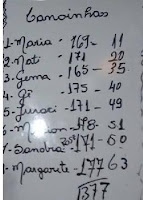 Canoinhas
1-Maria - 169 - 11
2-Nati - 171 - 20
3-Gema - 165 - 35
4-Gê - 175 - 40
5-Juraci - 171 - 49
6- - 178 - 51
7-Sandra - 171 - 60
8-Margarete - 177 63
1377